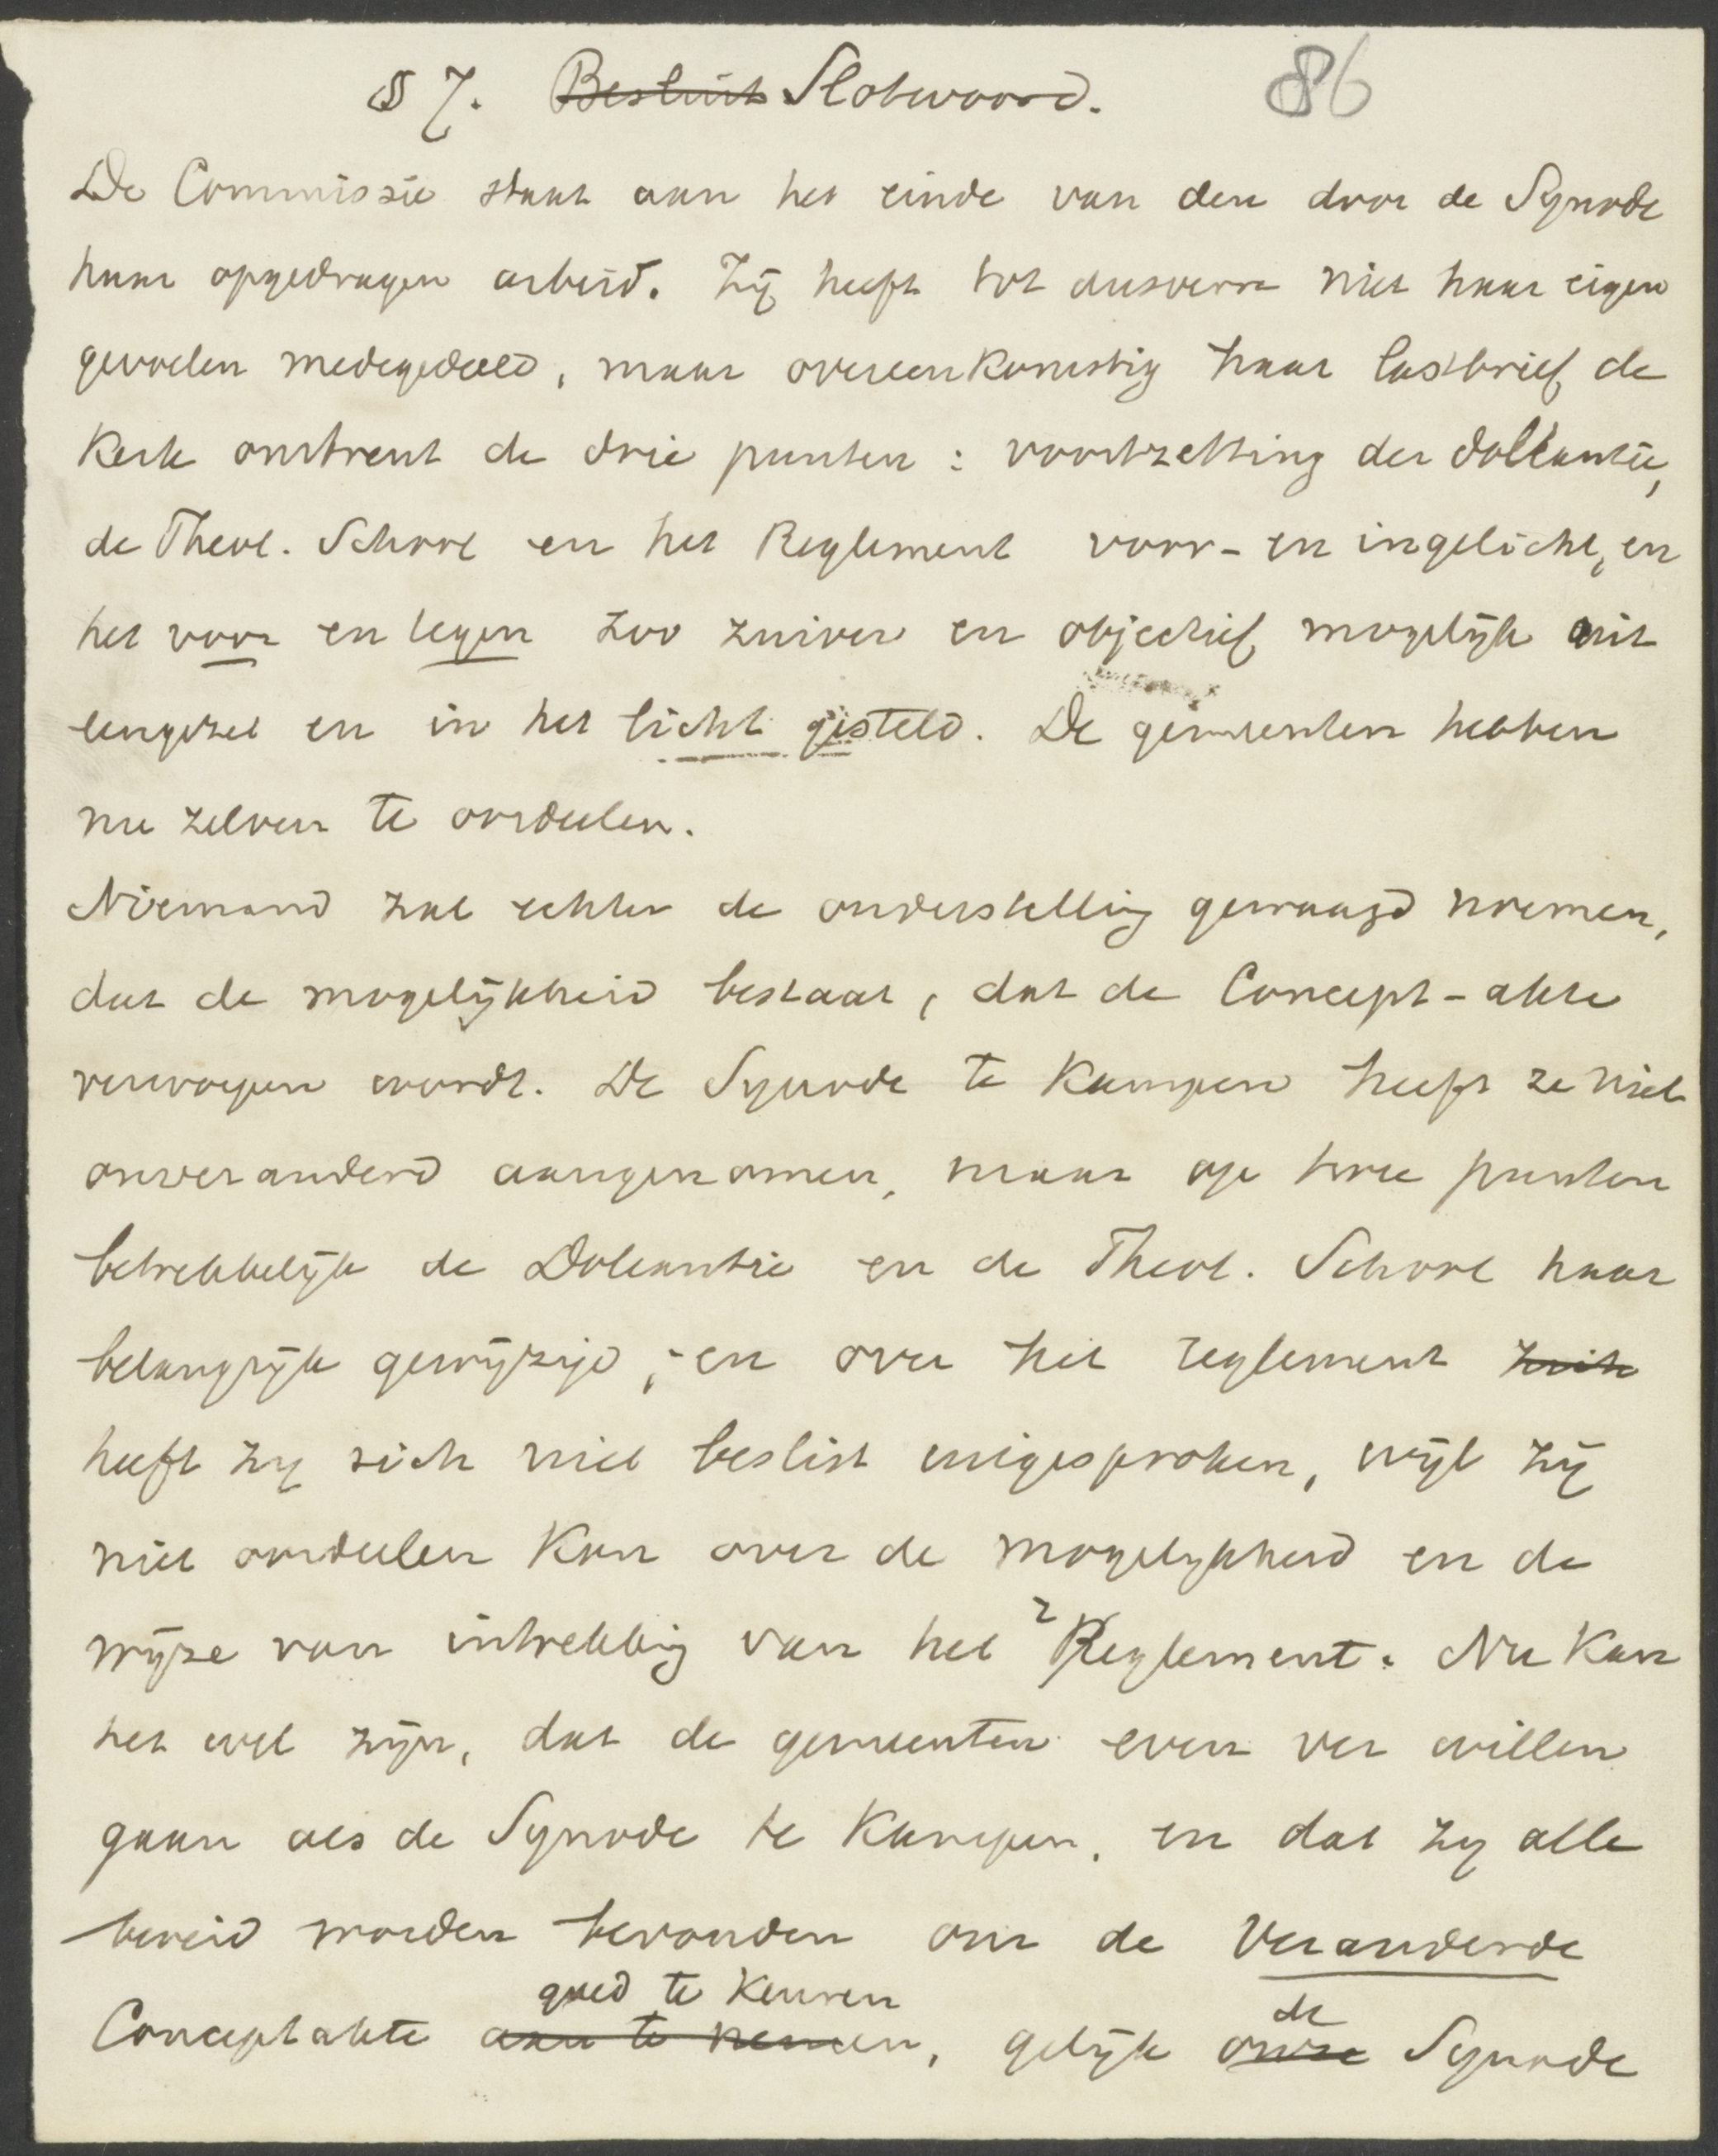 § 7. Besluit Slotwoord. 86
De Commissie staat aan het einde van den door de Synode
haar opgedragen arbeid. Zij heeft tot dusverre niet haar eigen
gevoelen medegedeeld, maar overeenkomstig haar lastbrief de
Kerk omtrent de drie punten: voortzetting der doleantie,
de Theol. School en het Reglement voor- en ingelicht, en
het voor en tegen zoo zuiver en objectief mogelijk uit
eengezet en in het licht gesteld. De gemeenten hebben
nu zelven te oordeelen.
Niemand zal echter de onderstelling gewaagd noemen,
dat de mogelijkheid bestaat, dat de Concept-akte
verworpen wordt. De Synode te Kampen heeft ze niet
onveranderd aangenomen, maar op twee punten
betrekkelijk de Doleantie en de Theol. School haar
belangrijk gewijzigd; en over het reglement zich
heeft zij zich niet beslist uitgesproken, wijl zij
niet oordeelen kon over de mogelijkheid en de
wijze van intrekking van het Reglement. Nu kan
het wel zijn, dat de gemeenten even ver willen
gaan als de Synode te Kampen, en dat zij alle
bereid worden bevonden om de veranderde
goed te keuren de
Conceptakte aan te nemen, gelijk onze Synode